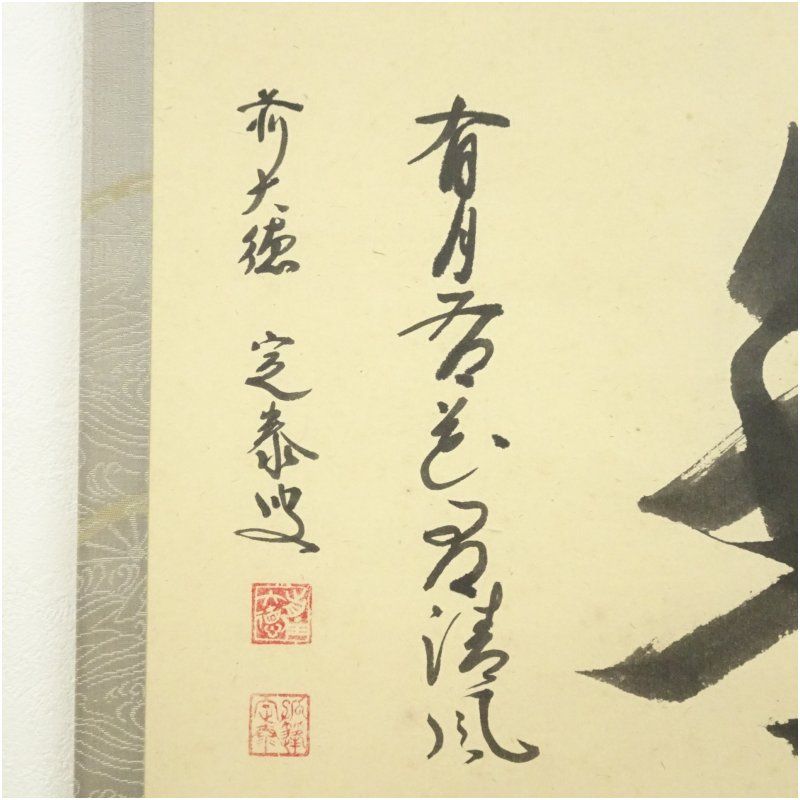 有月有花有清風
前大徳 定泰叟